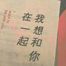 我想和你
在一起